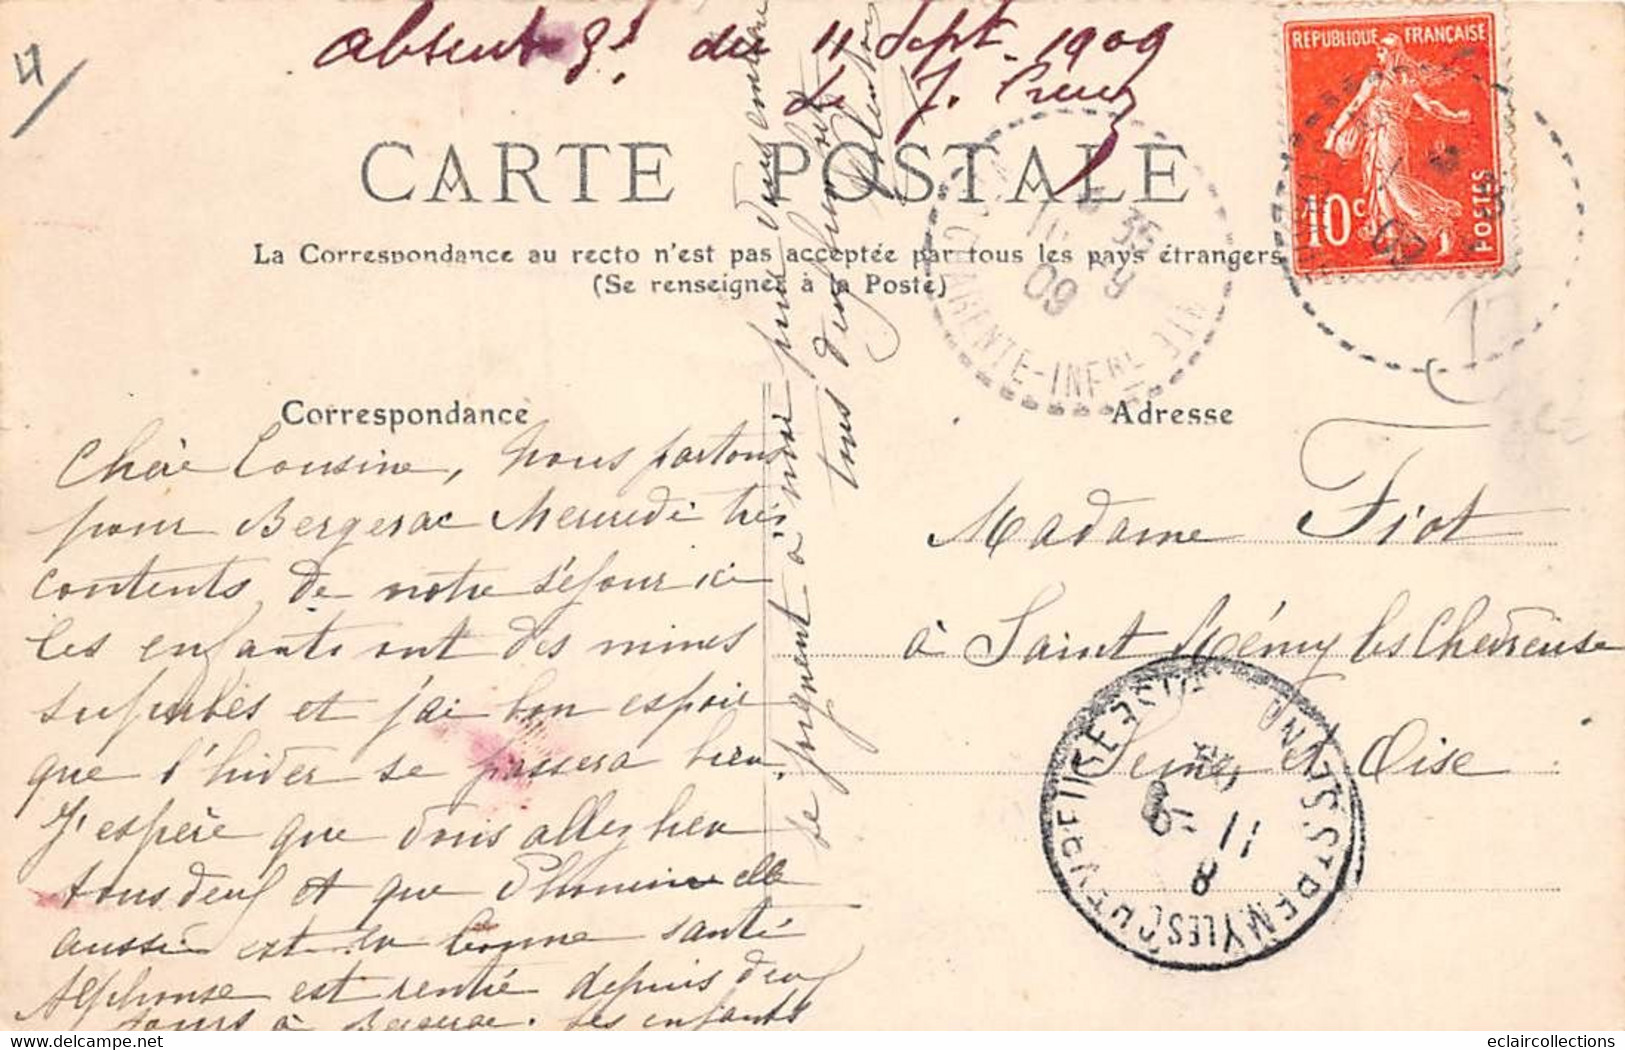 4/
absent Qd du 11 Sept 1909
CARTE POSTALE
La Correspondance au recto n'est pas acceptée par tous les pays étrangers
(Se renseigner à la Poste)
REPUBLIQUE FRANÇAISE
10c
POSTES
CHARENTE-INFRE
35
10 9
09
Correspondance
Adresse
Chère Cousine, Nous partons
pour Bergerac Mercredi très
contents de notre séjour ici
les enfants ont des mines
superbes et j'ai bon espoir
que l'hiver se passera bien.
J'espère que vous allez bien
tous deux et que elle
aussi est en bonne santé
Alphonse est rentré depuis deux
jours à Bergerac. Les enfants
se joignent à moi pour vous embrasser
tous deux bien fort
Madame Fiot
à Saint Rémy les Chevreuse
Seine et Oise
ST REMY LES CHEVREUSE
SEINE ET OISE
8
11 - 9
09
eclaircollections